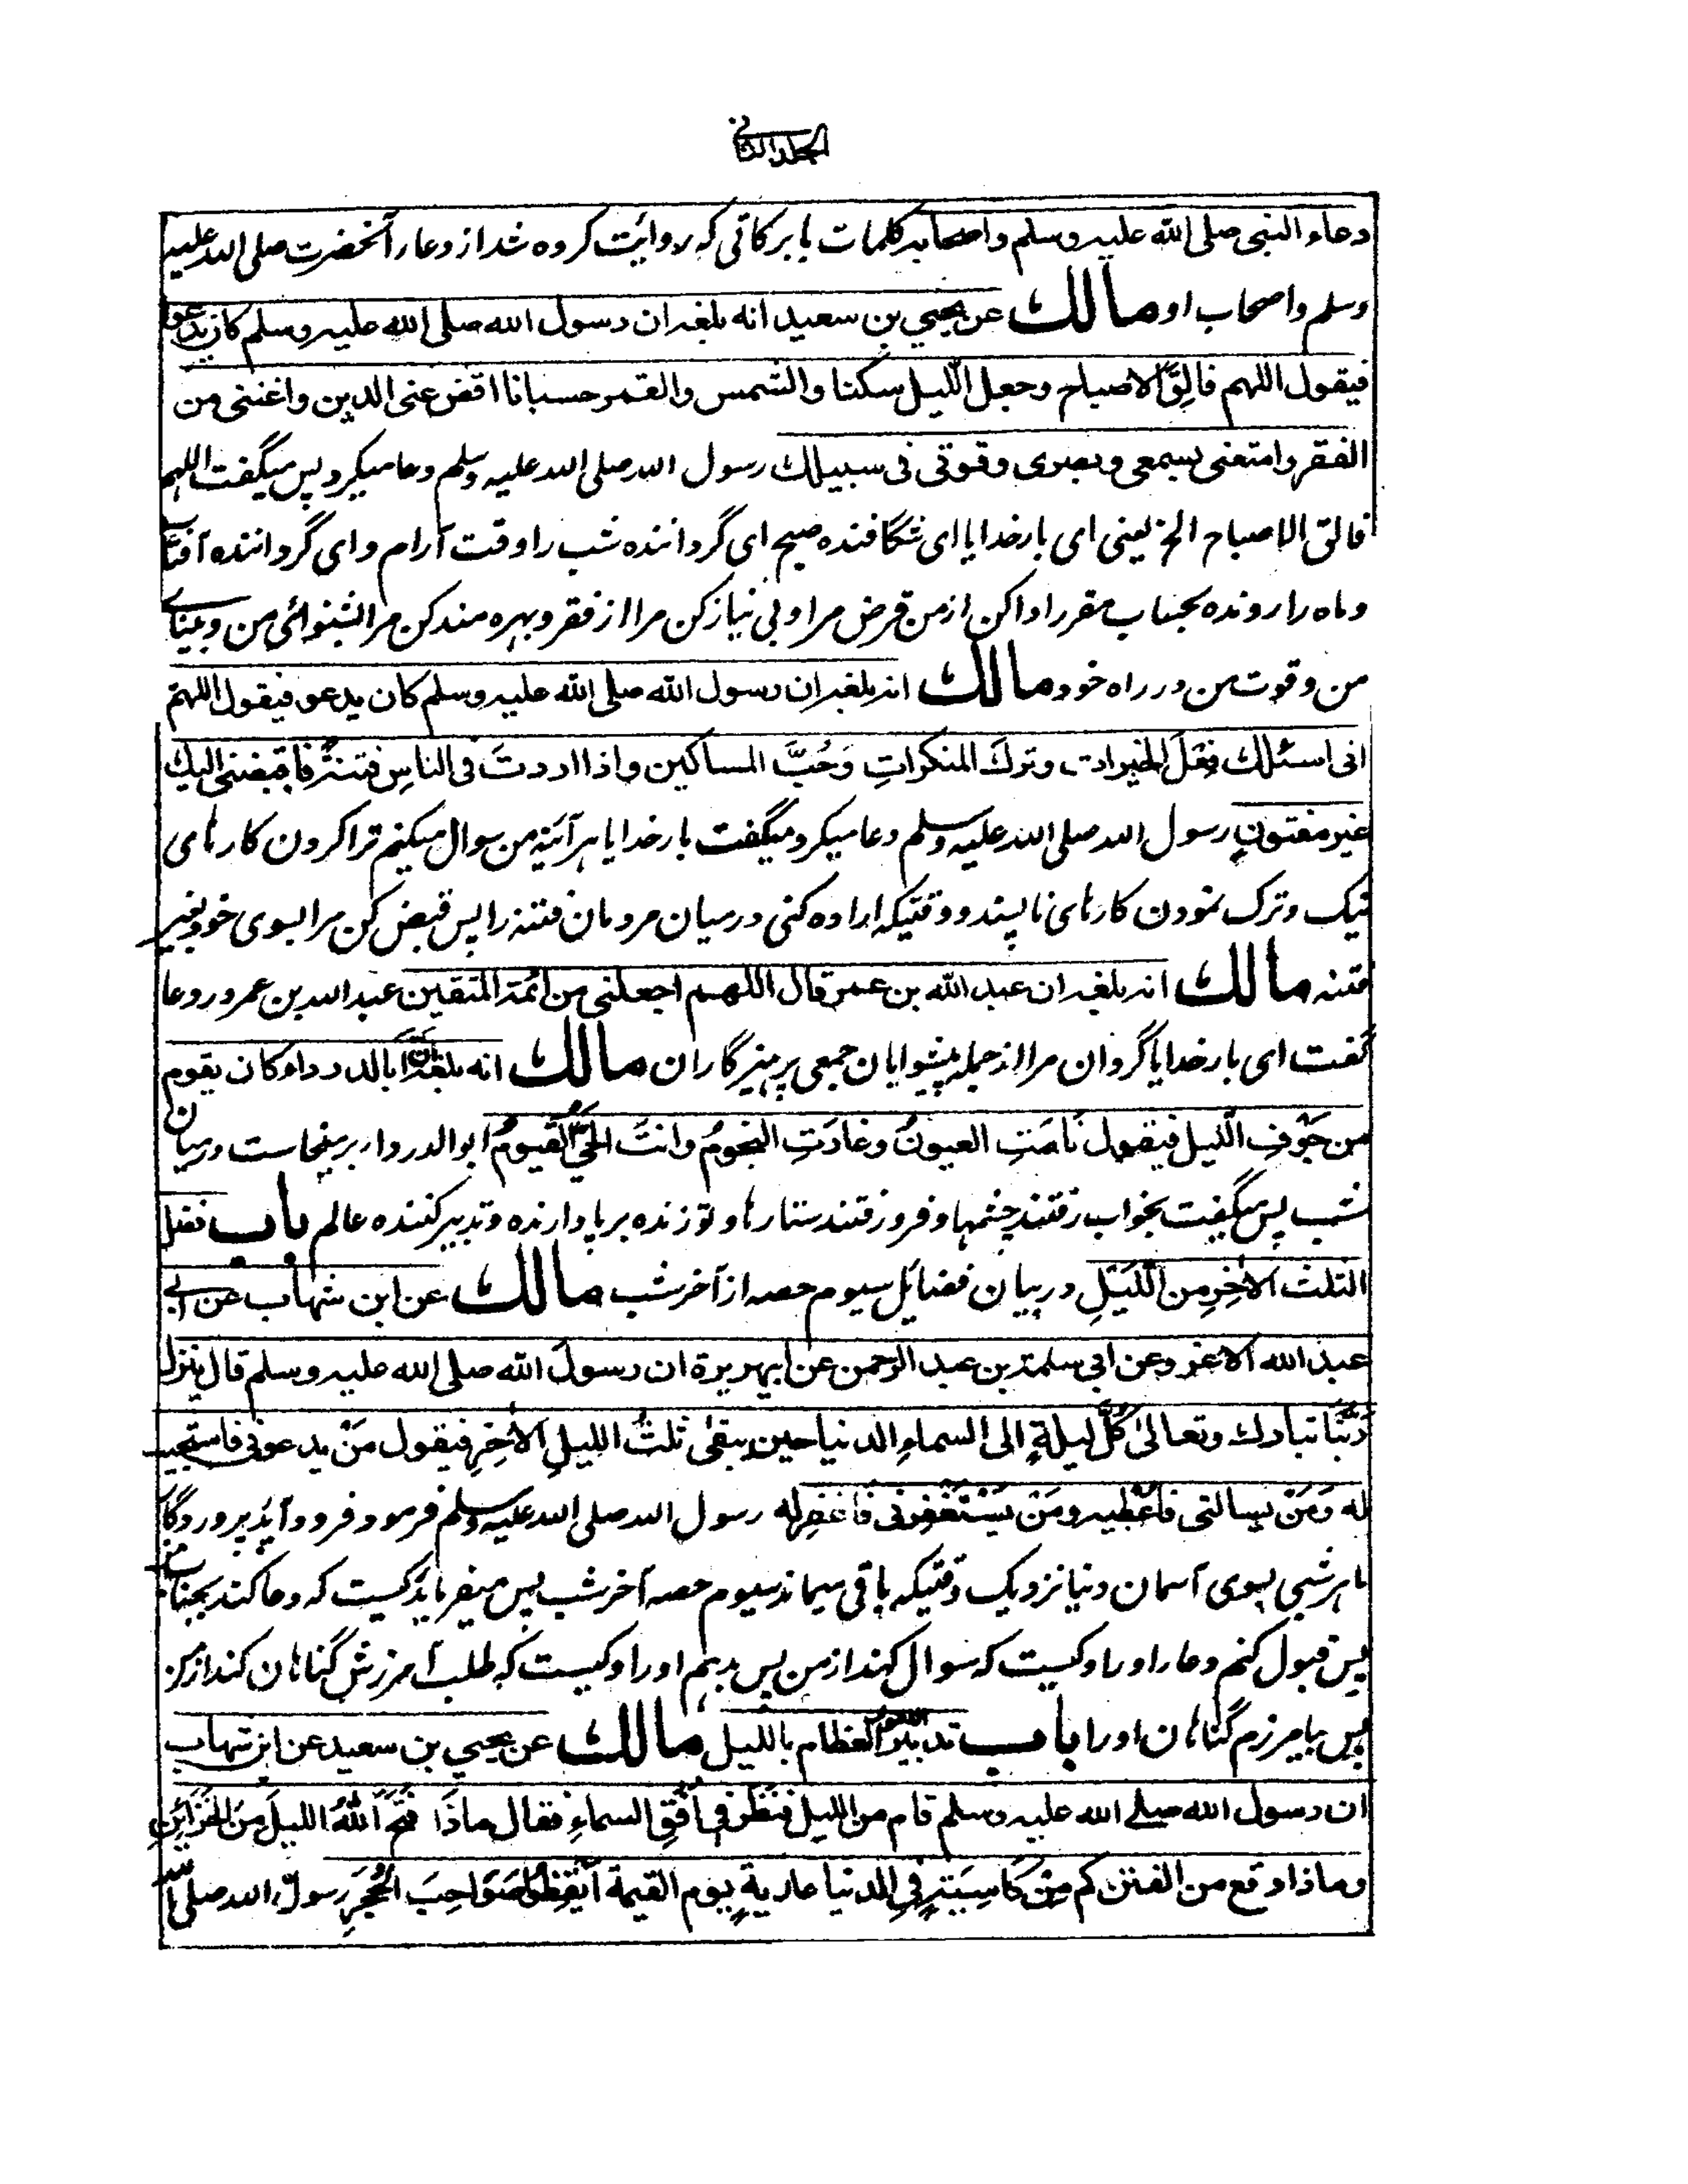 الجلد الثانی
دعاء النبی صلی الله علیه وسلم واصحابه کلمات با برکاتی که روایت کرده شد از دعاء آنحضرت صلی الله علیه
وسلم واصحاب او مالك عن یحیی بن سعید انه بلغه ان رسول الله صلی الله علیه وسلم کان یدعوا
فیقول اللهم فالِقَ الاصباح وجعل اللّیل سکنا والشمس والقمر حسبانا اقض عنی الدین واغننی من
الفقر وامتعنی بسمعی وبصری وقوتی فی سبیلك رسول الله صلی الله علیه وسلم دعا میکرد پس میگفت اللهم
فالق الاصباح الخ یعنی ای بار خدایا ای شگافنده صبح ای گرداننده شب را وقت آرام و ای گرداننده آفتاب
و ماه را رونده بحساب مقرر ادا کن از من قرض مرا و بی نیاز کن مرا از فقر و بهره مند کن مرا بشنوائی من و بینائی
من و قوت من در راه خود مالك انه بلغه ان رسول الله صلی الله علیه وسلم کان یدعو فیقول اللهمّ
انی اسئلك فِعْلَ الخیرات وتركَ المنکراتِ وَحُبَّ المساکین واذا اردتَ فی الناسِ فتنةً فاقبضنی الیك
غیر مفتونٍ رسول الله صلی الله علیه وسلم دعا میکرد میگفت بار خدایا هر آئینه من سوال میکنم ترا کردن کارهای
نیک و ترک نمودن کارهای ناپسند و وقتیکه اراده کنی درمیان مردمان فتنه را پس قبض کن مرا بسوی خود بغیر
فتنه مالك انه بلغه ان عبد الله بن عمر قال اللهم اجعلنی من ائمة المتقین عبد الله بن عمر در دعا
گفت ای بار خدایا گردان مرا از جمله پیشوایان جمعی پرهیزگاران مالك انه بلغه انّ ابا الدرداء کان یقوم
من جَوْفِ اللّیل فیقول نَامَتِ العیونُ وغارَتِ النجومُ وانتَ الحیُّ القیومُ ابو الدرداء برمیخاست درمیان
شب پس میگفت بخواب رفتند چشمها و فرو رفتند ستارها و تو زنده برپا دارنده و تدبیر کننده عالم باب فضل
الثلث الآخِرِ من اللّیلِ در بیان فضایل سیوم حصه از آخر شب مالك عن ابن شهاب عن ابی
عبد الله الاغر وعن ابی سلمة بن عبد الرحمن عن ابیهریرة ان رسول الله صلی الله علیه وسلم قال ینزل
رَبُّنَا تبارك وتعالیٰ کُلَّ لیلةٍ الی السماءِ الدنیا حین یبقیٰ ثلثُ اللیلِ الآخِرِ فیقول مَنْ یدعونی فاستجیب
له وَمَنْ یسالنی فاُعْطِیه ومَنْ یَسْتَغْفِرنی فاغفِرله رسول الله صلی الله علیه وسلم فرمود فرود آید پروردگار
ما هر شبی بسوی آسمان دنیا نزدیک وقتیکه باقی میماند سیوم حصه آخر شب پس میفرماید کیست که دعا کند بجناب من
پس قبول کنم دعاء او را و کیست که سوال کند از من پس بدهم او را و کیست که طلب آمرزش گناهان کند از من
پس بیامرزم گناهان او را باب تدبیر الامور العظام باللیل مالك عن یحیی بن سعید عن ابن شهاب
ان رسول الله صلی الله علیه وسلم قام من اللیل فنَظَرَ فی اُفُقِ السماءِ فقال ماذَا فتَحَ اللهُ اللیلَ مِنَ الخَزَائِنِ
وماذا وقع من الفتن کم مِنْ کاسِیَةٍ فی الدنیا عاریةٍ یوم القیمة اَیْقِظُوا صَوَاحِبَ الحُجَرِ رسول الله صلی الله